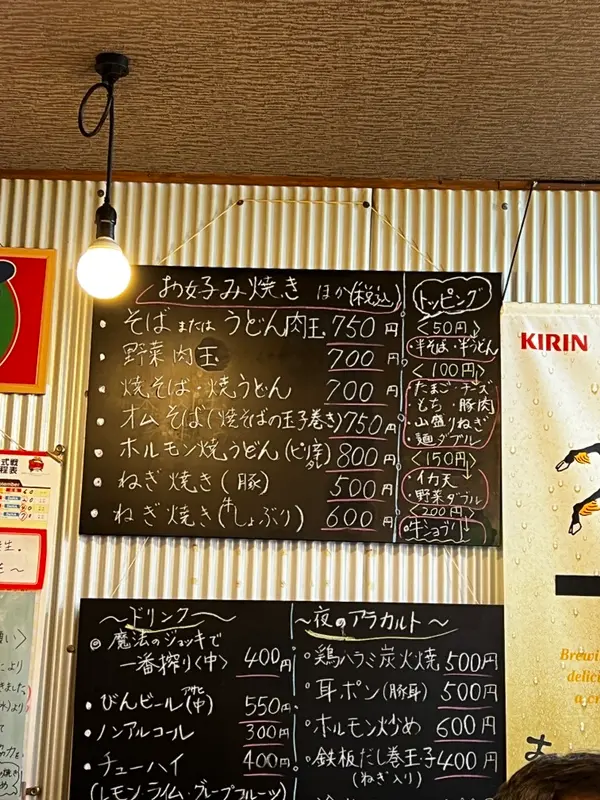 お好み焼き ほか(税込)
そば または うどん肉玉 750円
野菜肉玉 700円
焼そば・焼うどん 700円
オムそば(焼そばの玉子巻き) 750円
ホルモン焼うどん(ピリ辛ダレ) 800円
ねぎ焼き(豚) 500円
ねぎ焼き(牛しょぶり) 600円
トッピング
<50円>
・半そば・半うどん
<100円>
・たまご・チーズ
・もち・豚肉
・山盛りねぎ
・麺ダブル
<150円>
・イカ天
・野菜ダブル
<200円>
・牛ショブリ
KIRIN
〜ドリンク〜
◎魔法のジョッキで
一番搾り<中> 400円
・びんビール(アサヒ中) 550円
・ノンアルコール 300円
・チューハイ 400円
(レモン・ライム・グレープフルーツ)
〜夜のアラカルト〜
○鶏ハラミ炭火焼 500円
○耳ポン(豚耳) 500円
○ホルモン炒め 600円
○鉄板だし巻玉子 400円
(ねぎ入り)
Brewi
delici
a c
お